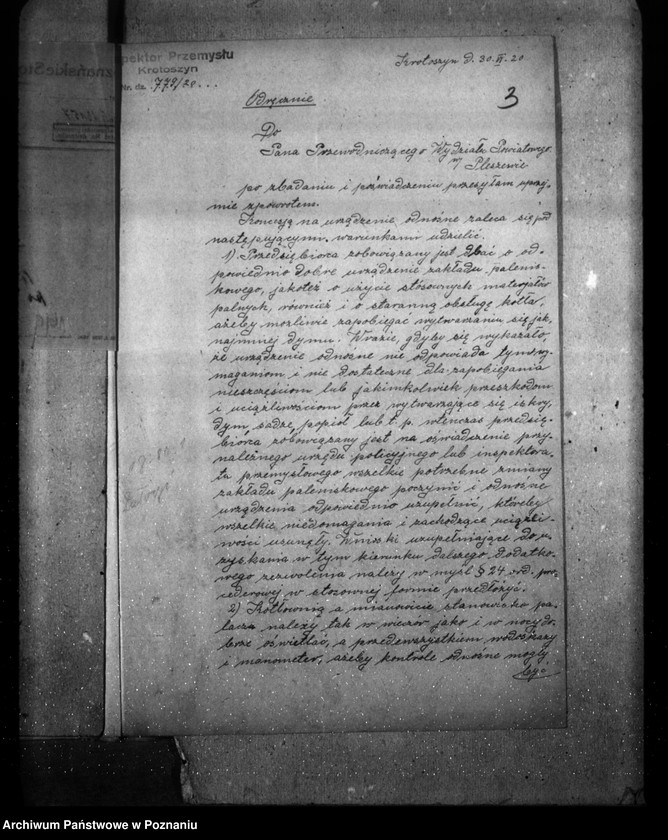 Inspektor Przemysłu
Krotoszyn
Nr. dz. 772/20...
Krotoszyn d. 30. VI. 20
3
Odręcznie
Do
Pana Przewodniczącego Wydziału Powiatowego
w/ Pleszewie
po zbadaniu i poświadczeniu przesyłam uprzej-
mie zpowrotem.
Koncesją na urządzenie odnośne zaleca się pod
następującymi warunkami udzielić.
1) Przedsiębiorca zobowiązany jest dbać o od-
powiednio dobre urządzenie zakładu palenis-
kowego, jakoteż o użycie stosownych materjałów
palnych, również i o staranną obsługę kotła,
ażeby możliwie zapobiegać wytwarzaniu się jak
najmniej dymu. W razie, gdyby się wykazało
że urządzenie odnośne nie odpowiada tym wy-
maganiom i nie dostateczne dla zapobiegania
nieszczęściom lub jakimkolwiek przeszkodom
i uciążliwościom przez wytwarzające się iskry,
dym sadzę, popiół lub t. p. wtenczas przedsię-
biorca zobowiązany jest na oświadczenie przy-
należnego urzędu policyjnego lub inspektora-
tu przemysłowego wszelkie potrzebne zmiany
zakładu paleniskowego poczynić i odnośne
urządzenia odpowiednio uzupełnić, któreby
wszelkie niedomagania i zachodzące uciążli-
wości usunęły. Wnioski uzupełniające do u-
zyskania w tym kierunku dalszego dodatko-
wego zezwolenia należy w myśl § 24 ord. pro-
cederowej w stosownej formie przedłożyć.
2) Kotłownią a mianowicie stanowisko pa-
lacza należy tak w wieczór jako i w nocy do-
brze oświetlać, a przedewszystkiem wodoskazy
i manometer, ażeby kontrole odnośne mogły
być
Archiwum Państwowe w Poznaniu